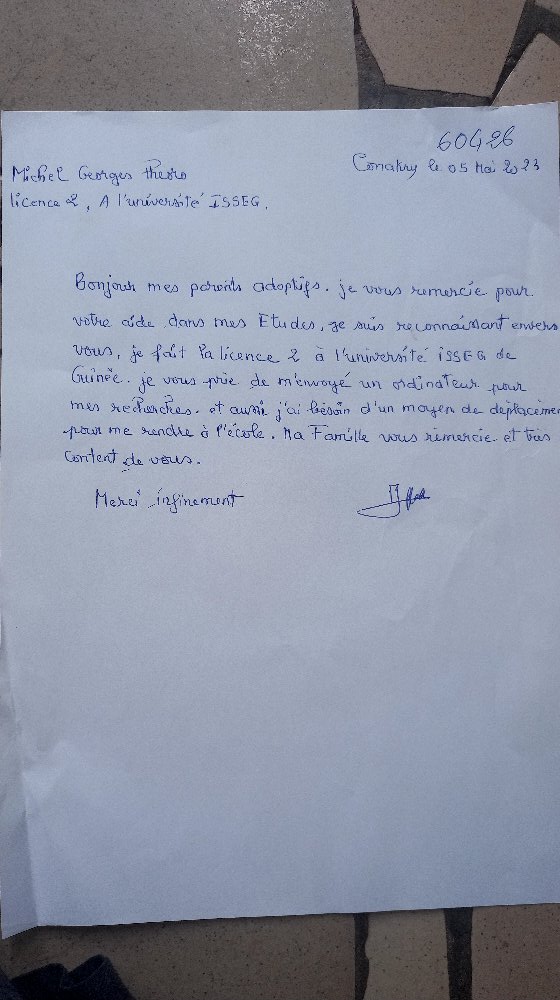 60426
Conakry le 05 Mai 2023
Michel Georges Theoro
licence 2, A l'université ISSEG.
Bonjour mes parents adoptifs. je vous remercie pour
votre aide dans mes Etudes, je suis reconnaissant envers
vous, je fait la licence 2 à l'université ISSEG de
Guinée. je vous prie de m'envoyé un ordinateur pour
mes recherches. et aussi j'ai besoin d'un moyen de deplaceme
pour me rendre à l'école. Ma Famille vous remercie et très
content de vous.
Merci infinement